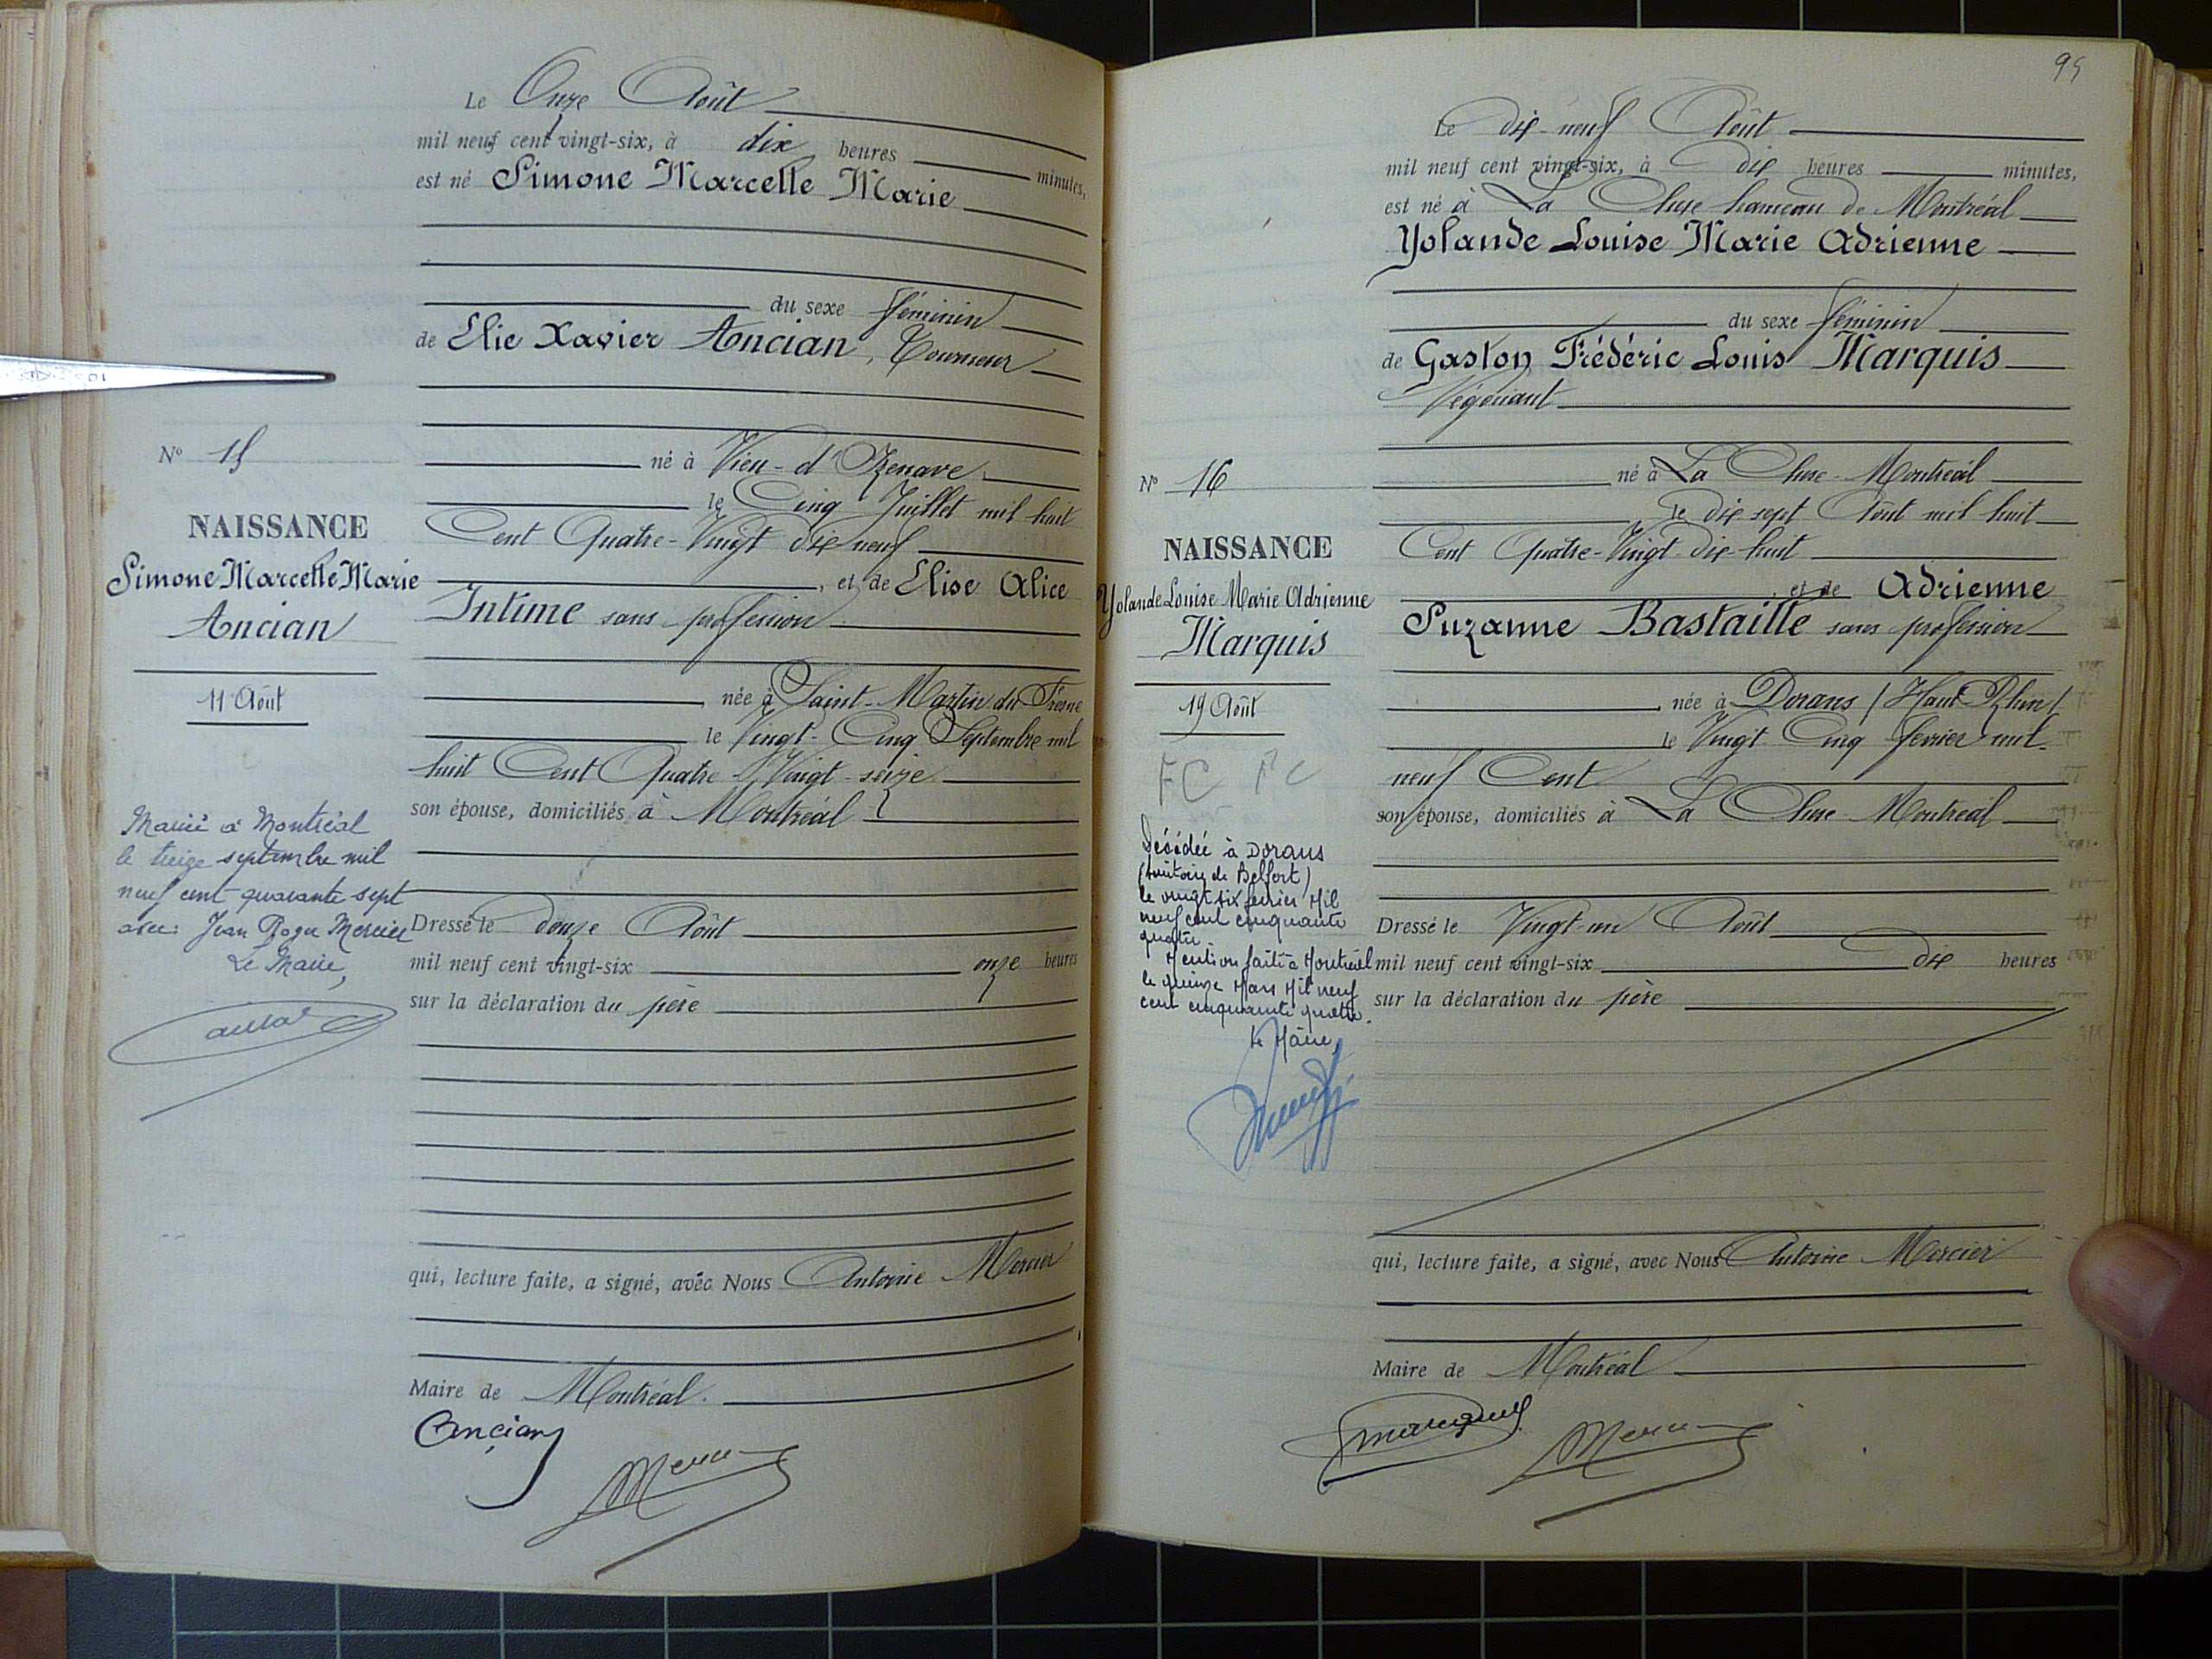 Le Onze Août
mil neuf cent vingt-six, à dix heures minutes,
est né Simone Marcelle Marie
du sexe féminin
de Elie Xavier Ancian, Tourneur
né à Vieu-d'Izenave
le Cinq Juillet mil huit
Cent Quatre-Vingt dix neuf
, et de Elise Alice
Intime sans profession
née à Saint-Martin du Fresne
le Vingt-Cinq Septembre mil
huit Cent Quatre Vingt-seize
son épouse, domiciliés à Montréal
Dressé le douze Août
mil neuf cent vingt-six onze heures
sur la déclaration du père
qui, lecture faite, a signé, avec Nous Antoine Mercier
Maire de Montréal.
Ancian
Mercier
N° 15
NAISSANCE
Simone Marcelle Marie
Ancian
11 Août
Mariée à Montréal
le treize septembre mil
neuf cent quarante sept
avec: Jean Roger Mercier
Le Maire,
95
Le dix-neuf Août
mil neuf cent vingt-six, à dix heures minutes,
est né à La Cluse hameau de Montréal
Yolande Louise Marie Adrienne
du sexe féminin
de Gaston Frédéric Louis Marquis
Négociant
né à La Cluse-Montréal
le dix sept Août mil huit
Cent Quatre-Vingt-dix-huit
, et de Adrienne
Suzanne Bastaille sans profession
née à Dorans (Haut-Rhin)
le Vingt Cinq février mil
neuf Cent
son épouse, domiciliés à La Cluse-Montréal
Dressé le Vingt-un Août
mil neuf cent vingt-six dix heures
sur la déclaration du père
qui, lecture faite, a signé, avec Nous Antoine Mercier
Maire de Montréal
Marquis
Mercier
N° 16
NAISSANCE
Yolande Louise Marie Adrienne
Marquis
19 Août
FC FC
Décédée à Dorans
(territoire de Belfort)
le vingt six février Mil
neuf cent cinquante
quatre.
Mention faite à Montréal
le quinze Mars Mil neuf
cent cinquante quatre.
Le Maire,